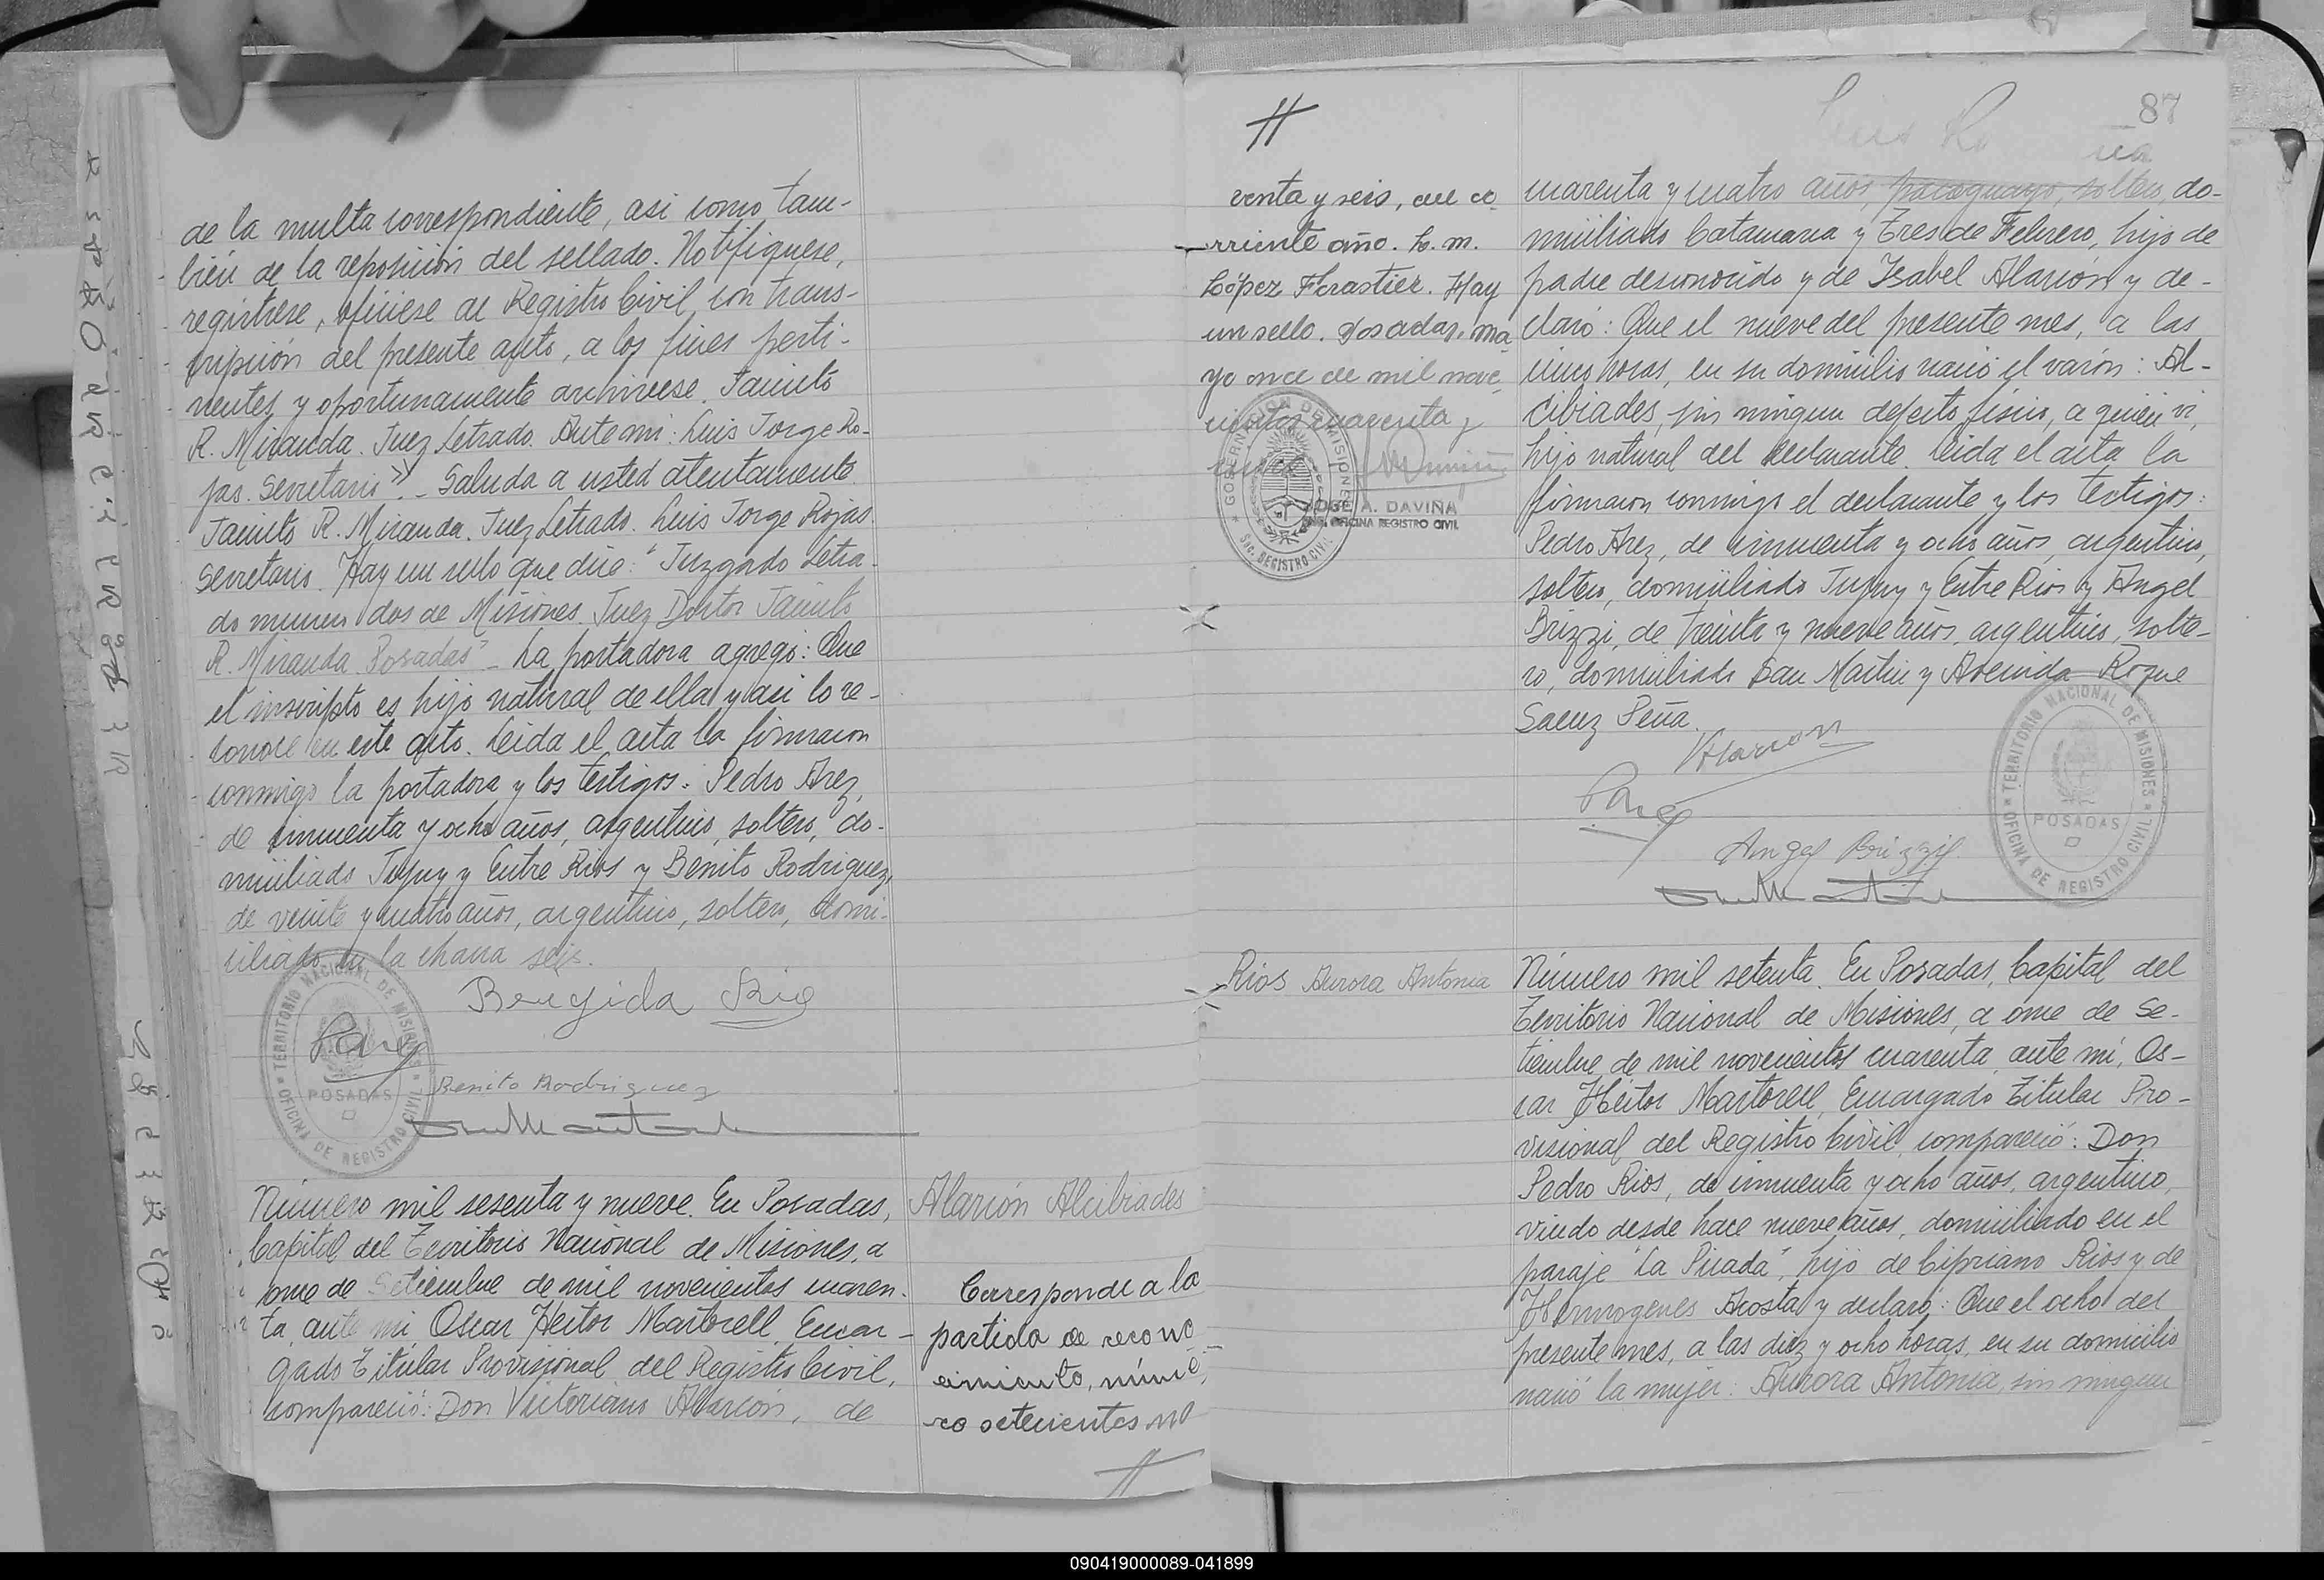 de la multa correspondiente, asi como tam-
bién de la reposición del sellado. Notifíquese,
regístrese, ofíciese al Registro Civil con trans-
cripción del presente auto, a los fines perti-
nentes y oportunamente archívese. Jacinto
R. Miranda. Juez Letrado. Ante mi: Luis Jorge Ro-
jas. Secretario". - Saluda a usted atentamente
Jacinto R. Miranda. Juez Letrado. Luis Jorge Rojas.
Secretario. Hay un sello que dice: "Juzgado Letra-
do número dos de Misiones. Juez Doctor Jacinto
R. Miranda. Posadas" - La portadora agregó: Que
el inscripto es hijo natural de ella y asi lo re-
conoce en este acto. Leida el acta la firmaron
conmigo la portadora y los testigos: Pedro Arez,
de cincuenta y ocho años, argentino, soltero, do-
miciliado Jujuy y Entre Rios y Benito Rodriguez,
de veinte y cuatro años, argentino, soltero, domi-
ciliado en la chacra seis.
TERRITORIO NACIONAL DE MISIONES
POSADAS
OFICINA DE REGISTRO CIVIL
Benito Rodriguez
Número mil sesenta y nueve. En Posadas,
Capital del Territorio Nacional de Misiones, a
once de Setiembre de mil novecientos cuaren-
ta, ante mi Oscar Héctor Martorell, Encar-
gado Titular Provisional del Registro Civil,
compareció: Don Victoriano Alarcón, de
Alarcón Alcibiades
Corresponde a la
partida de recono
cimiento, núme-
ro setecientos no
//
87
//
venta y seis, del co-
rriente año. L. M.
López Forastier. Hay
un sello. Posadas, ma
yo once de mil nove
cientos cuarenta y
GOBERNACION DE MISIONES
REGISTRO CIVIL
JORGE A. DAVIÑA
OFICINA REGISTRO CIVIL
cuarenta y cuatro años, paraguayo, soltero, do-
miciliado Catamarca y Tres de Febrero, hijo de
padre desconocido y de Isabel Alarcón y de-
claró: Que el nueve del presente mes, a las
cinco horas, en su domicilio nació el varón: Al-
cibiades, sin ningun defecto físico, a quien vi,
hijo natural del declarante. Leida el acta la
firmaron conmigo el declarante y los testigos:
Pedro Arez, de cincuenta y ocho años, argentino,
soltero, domiciliado Jujuy y Entre Rios y Angel
Brizzi, de treinta y nueve años, argentino, solte-
ro, domiciliado San Martin y Avenida Roque
Saenz Peña.
VAlarcon
Angel Brizzi
TERRITORIO NACIONAL DE MISIONES
POSADAS
OFICINA DE REGISTRO CIVIL
Rios Aurora Antonia
Número mil setenta. En Posadas, Capital del
Territorio Nacional de Misiones, a once de Se-
tiembre de mil novecientos cuarenta, ante mi, Os-
car Héctor Martorell, Encargado Titular Pro-
visional del Registro Civil, compareció: Don
Pedro Rios, de cincuenta y ocho años, argentino,
viudo desde hace nueve años, domiciliado en el
paraje "La Picada", hijo de Cipriano Rios y de
Hermogenes Acosta y declaró: Que el ocho del
presente mes, a las diez y ocho horas, en su domicilio
nació la mujer: Aurora Antonia, sin ningun
090419000089-041899